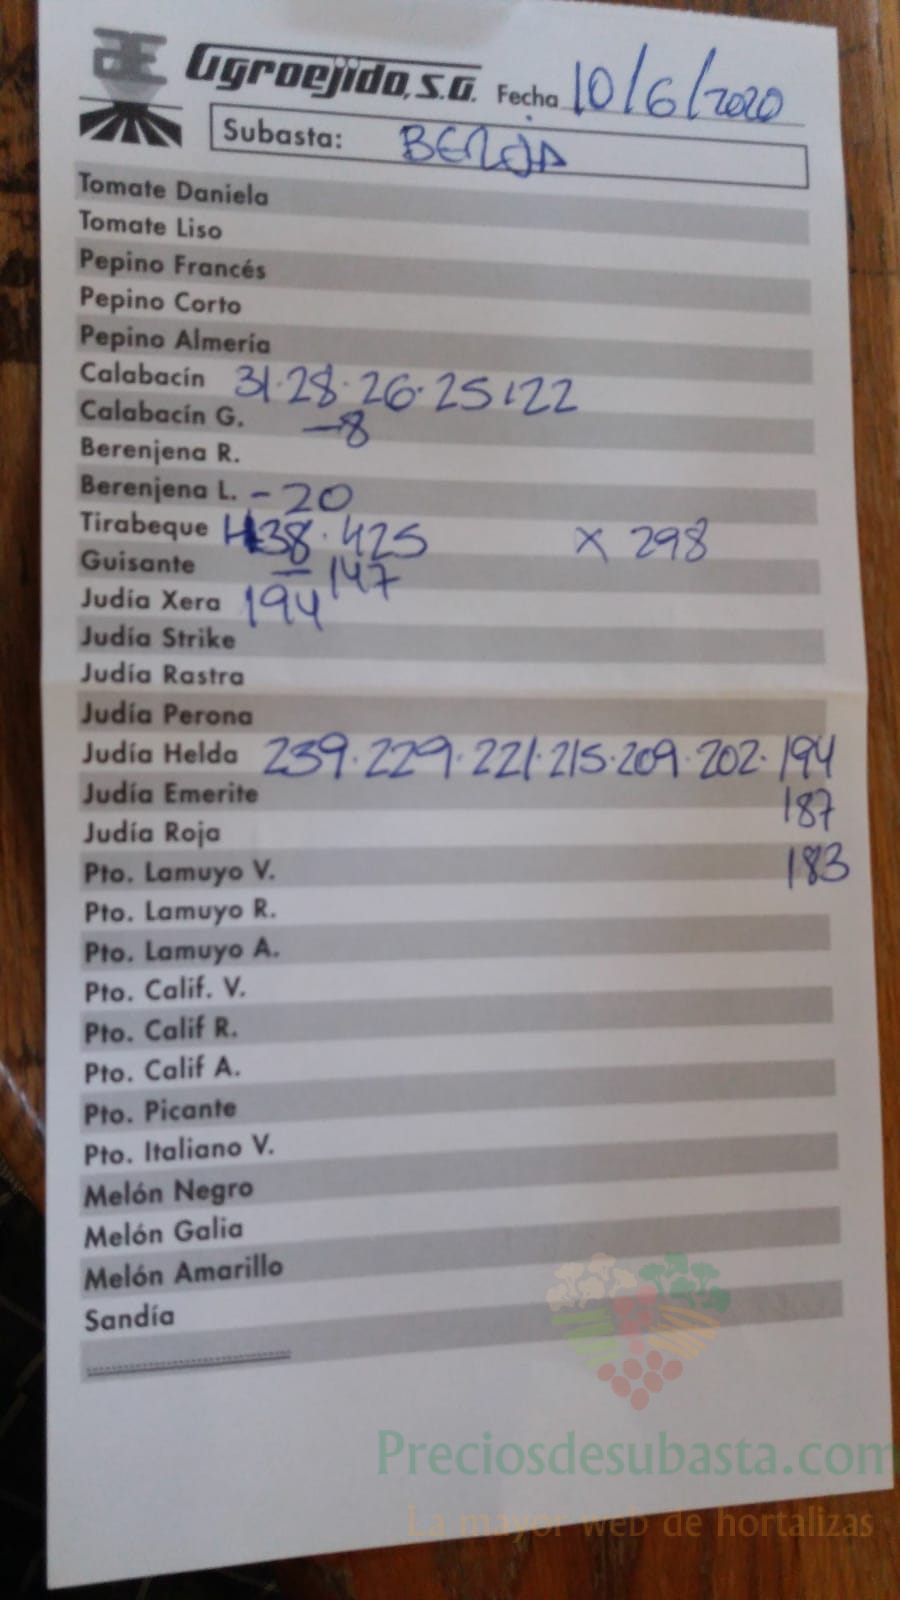 Agroejido, S.A. Fecha 10/6/2020
Subasta: BERJA
Tomate Daniela
Tomate Liso
Pepino Francés
Pepino Corto
Pepino Almería
Calabacín 31·28·26·25·22
Calabacín G. -8
Berenjena R.
Berenjena L. -20
Tirabeque 438·425 x 298
Guisante - 147
Judía Xera 194
Judía Strike
Judía Rastra
Judía Perona
Judía Helda 239·229·221·215·209·202·194
Judía Emerite 187
Judía Roja
Pto. Lamuyo V. 183
Pto. Lamuyo R.
Pto. Lamuyo A.
Pto. Calif. V.
Pto. Calif R.
Pto. Calif A.
Pto. Picante
Pto. Italiano V.
Melón Negro
Melón Galia
Melón Amarillo
Sandía
Preciosdesubasta.com
La mayor web de hortalizas